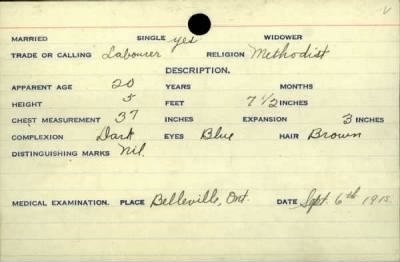 MARRIED SINGLE yes WIDOWER
TRADE OR CALLING Labourer RELIGION Methodist
DESCRIPTION.
APPARENT AGE 20 YEARS MONTHS
HEIGHT 5 FEET 7 1/2 INCHES
CHEST MEASUREMENT 37 INCHES EXPANSION 3 INCHES
COMPLEXION Dark EYES Blue HAIR Brown
DISTINGUISHING MARKS Nil.
MEDICAL EXAMINATION. PLACE Belleville, Ont. DATE Sept. 6th 1915